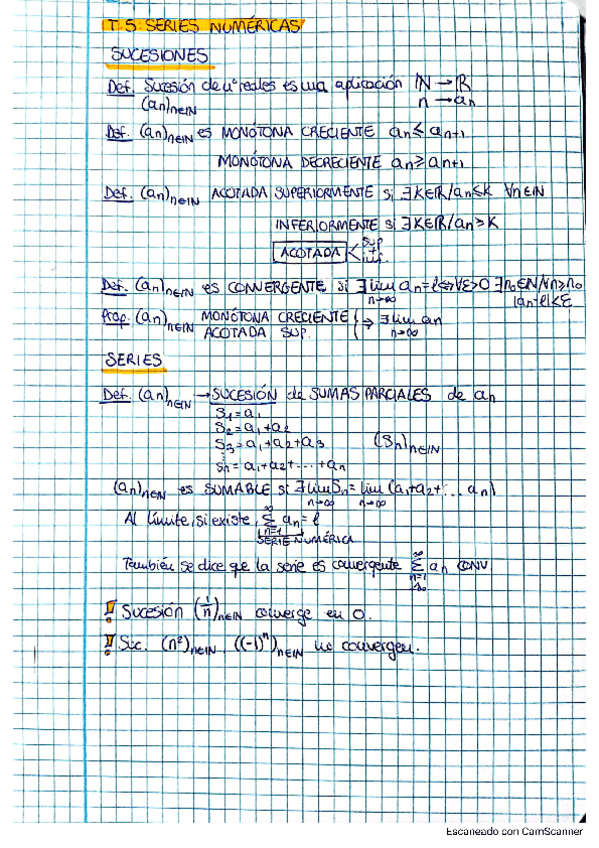 T.5. SERIES NUMÉRICAS
SUCESIONES
Def. Sucesión de nº reales es una aplicación ℕ → ℝ
(an)n∈ℕ n → an
Def. (an)n∈ℕ es MONÓTONA CRECIENTE an ≤ an+1
MONÓTONA DECRECIENTE an ≥ an+1
Def. (an)n∈ℕ ACOTADA SUPERIORMENTE si ∃K∈ℝ/an≤K ∀n∈ℕ
INFERIORMENTE si ∃K∈ℝ/an≥K
ACOTADA < sup + inf.
Def. (an)n∈ℕ es CONVERGENTE si ∃ lim an = l ⇔ ∀ε>0 ∃n₀∈ℕ/∀n≥n₀
n→∞ |an-l|<ε
Prop. (an)n∈ℕ MONÓTONA CRECIENTE } → ∃ lim an
ACOTADA SUP. n→∞
SERIES
Def. (an)n∈ℕ → SUCESIÓN de SUMAS PARCIALES de an
S1 = a1
S2 = a1+a2
S3 = a1+a2+a3 (Sn)n∈ℕ
⋮
Sn = a1+a2+...+an
(an)n∈ℕ es SUMABLE si ∃ lim Sn = lim (a1+a2+... an)
n→∞ n→∞
Al límite, si existe, ∞Σn=1 an = l
SERIE NUMÉRICA
También se dice que la serie es convergente ∞Σn=1 an CONV.
! Sucesión (1/n)n∈ℕ converge en 0.
! Suc. (n²)n∈ℕ ((-1)ⁿ)n∈ℕ no convergen.
Escaneado con CamScanner